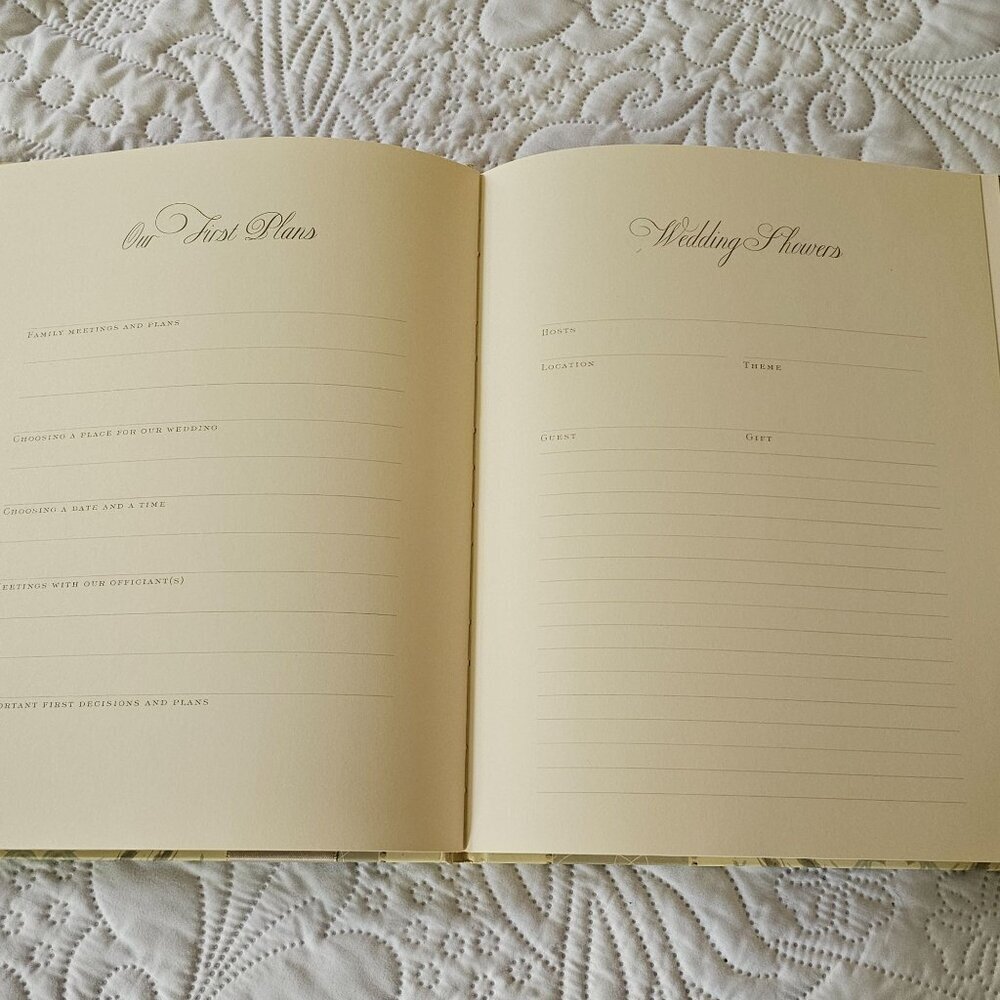 Our First Plans
Family meetings and plans
Choosing a place for our wedding
Choosing a date and a time
eetings with our officiant(s)
ortant first decisions and plans
Wedding Showers
Hosts
Location Theme
Guest Gift